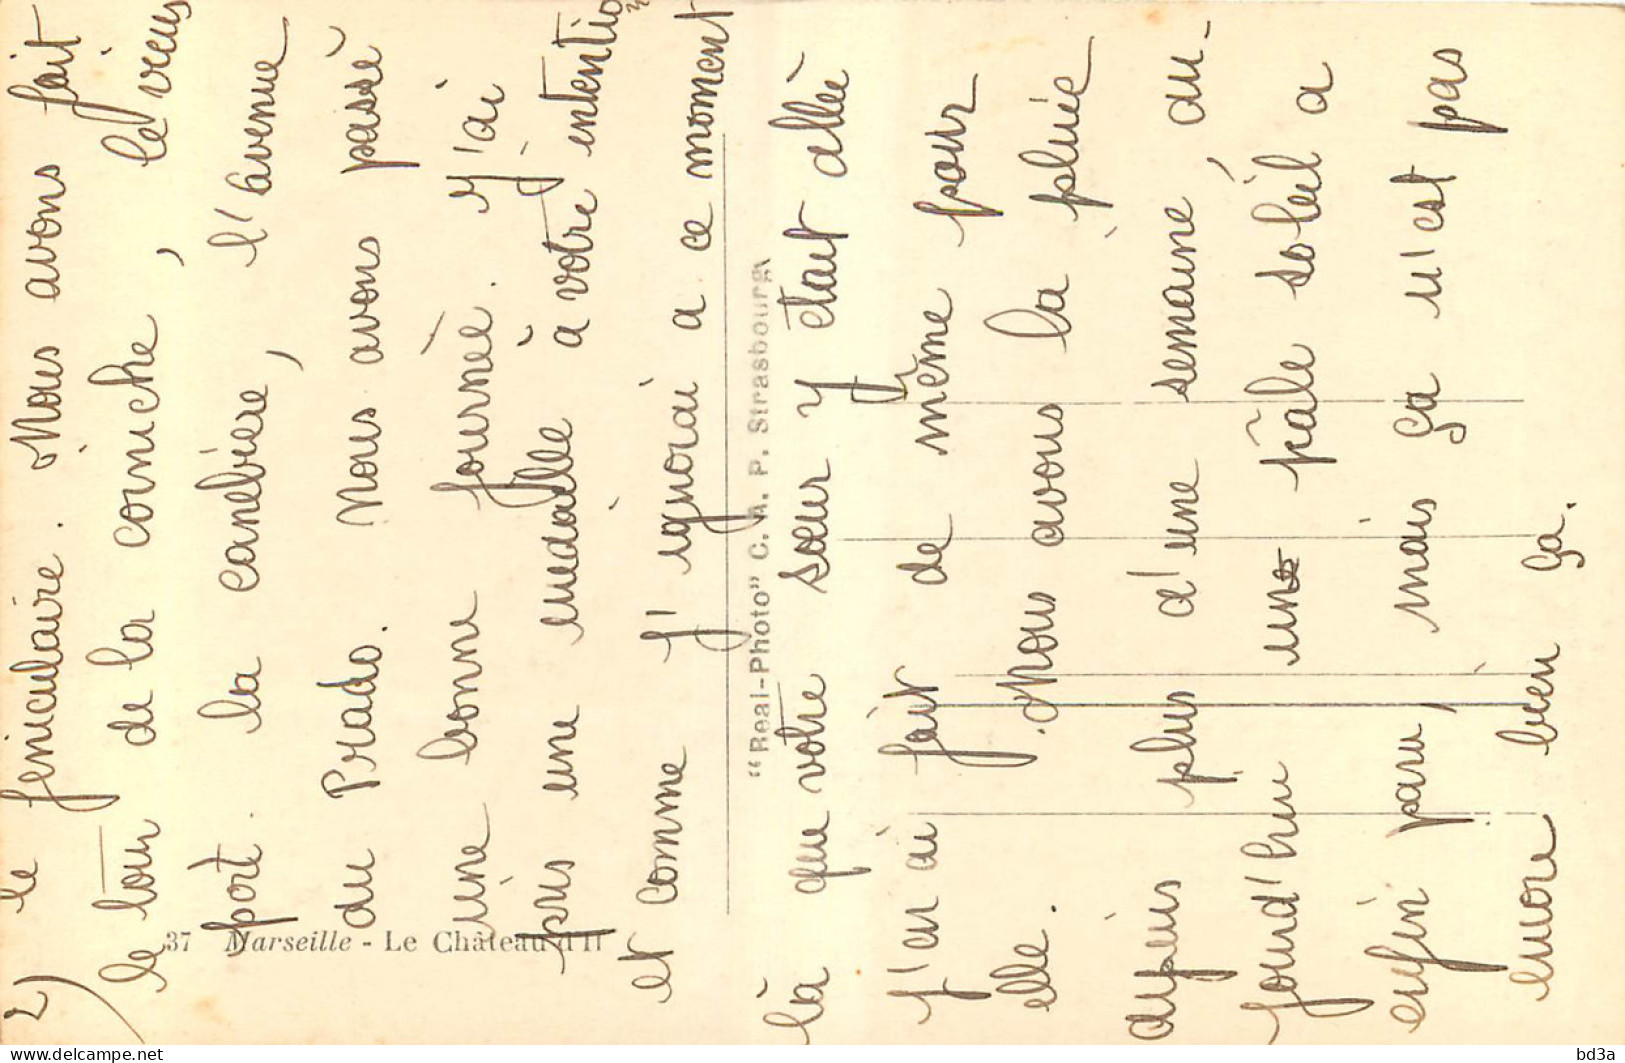 2) le feniculaire. Nous avons fait
le tour de la corniche, le vieux
port. la canebière, l'avenue
du Prado. Nous avons passé
une bonne journée. J'ai
pris une médaille à votre intention
et comme j'ignorai a ce moment
là que votre sœur y etait allée
j'en ai fait de même pour
elle. Nous avons la pluie
depuis plus d'une semaine, au-
jourd'hui un pâle soleil a
enfin paru, mais ça n'est pas
encore bien ça.
37 Marseille - Le Château d'If
"Real-Photo" C. A. P. Strasbourg
www.delcampe.net
bd3a